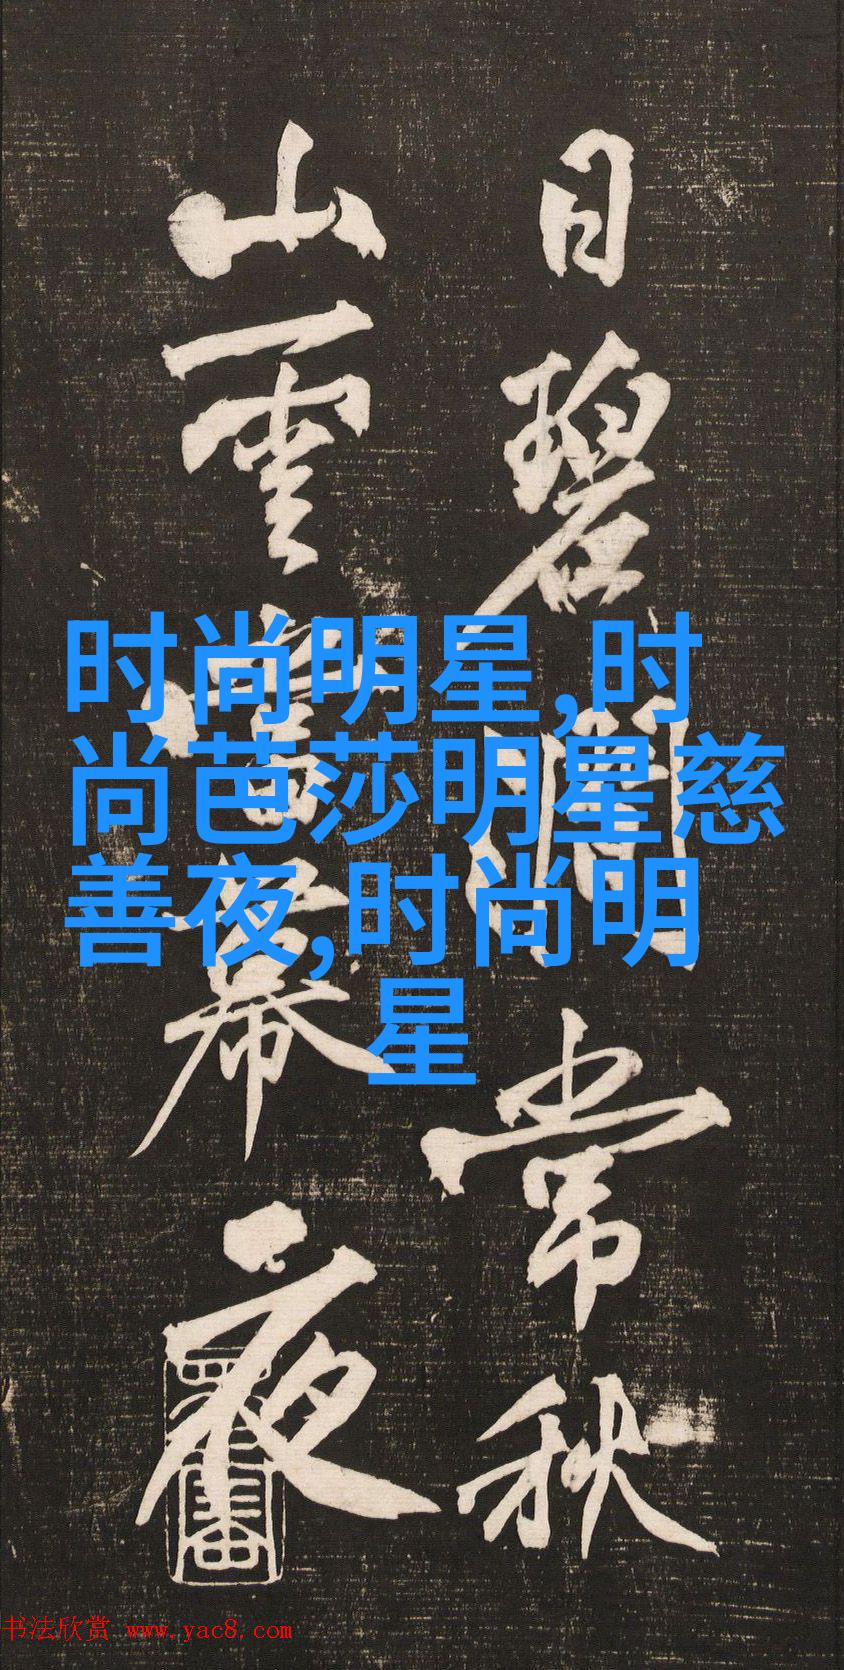 日碧澗常秋
山雲當幕夜
时尚明星,时
尚芭莎明星慈
善夜,时尚明
星
书法欣赏 www.yac8.com